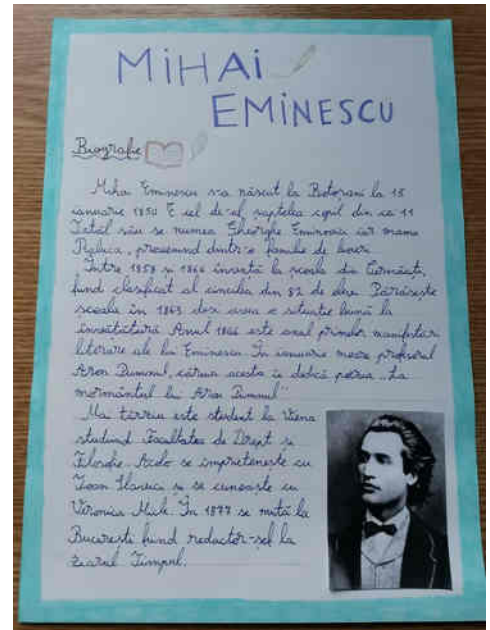 MIHAI
EMINESCU
Biografie
Mihai Eminescu s-a născut la Botoșani la 15
ianuarie 1850 E cel de-al șaptelea copil din cei 11
Tatăl său se numea Gheorghe Eminovici iar mama
Raluca, provenind dintr-o familie de boieri
Între 1858 și 1866 învață la școala din Cernăuți,
fiind clasificat al cincilea din 82 de elevi. Părăsește
școala în 1863 deși avea o situație bună la
învățătură Anul 1866 este anul primelor manifestări
literare ale lui Eminescu. În ianuarie moare profesorul
Aron Pumnul, căruia acesta îi dedică poezia „La
mormântul lui Aron Pumnul"
Mai târziu este student la Viena
studiind Facultatea de Drept și
Filosofie. Acolo se împrietenește cu
Ioan Slavici și se cunoaște cu
Veronica Micle. În 1877 se mută la
București fiind redactor-șef la
ziarul Timpul.